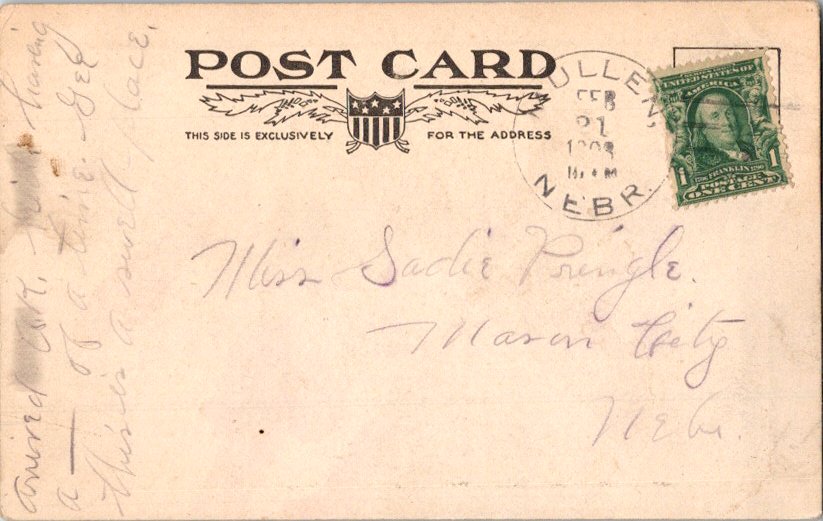 POST CARD
THIS SIDE IS EXCLUSIVELY FOR THE ADDRESS
ULLEN,
FEB
21
NEBR.
UNITED STATES OF
AMERICA
1 1
FRANKLIN
POSTAGE
ONE CENT
Miss Sadie Pringle.
Mason City
Nebr.
arrived O.K. having
a — of a time. Gee
this is a swell place.